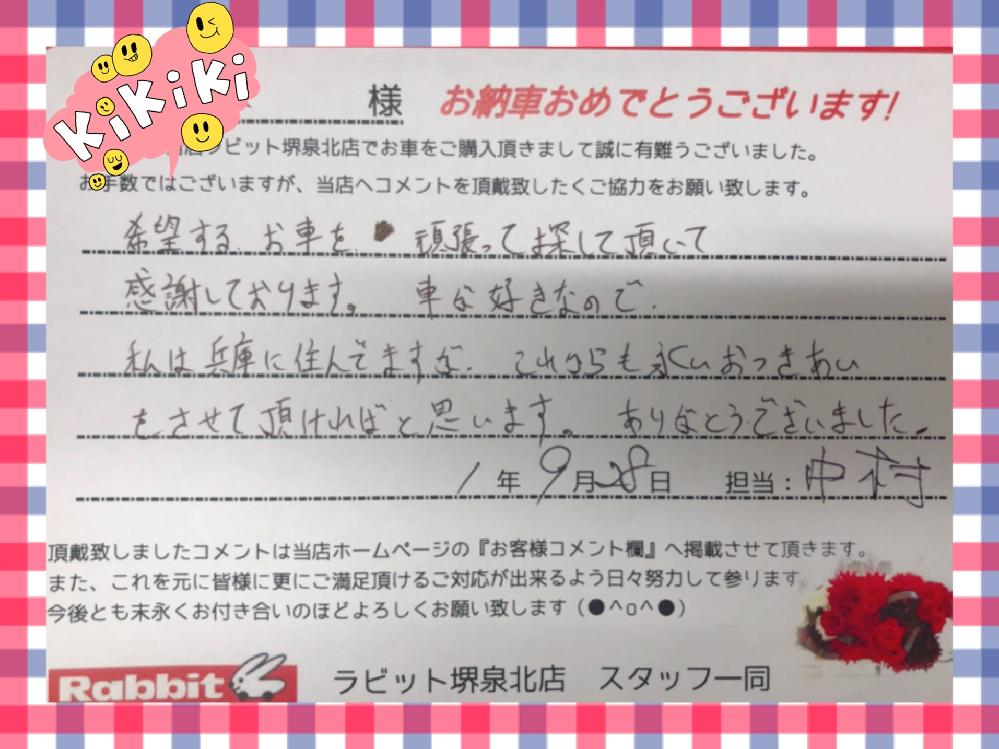 KiKiKi
様 お納車おめでとうございます!
ラビット堺泉北店でお車をご購入頂きまして誠に有難うございました。
お手数ではございますが、当店へコメントを頂戴致したくご協力をお願い致します。
希望する お車を 頑張って お探して頂いて
感謝しております。 車が好きなので、
私は兵庫に住んでますが、これからも永いおつきあい
をさせて頂ければと思います。 ありがとうございました。
1年9月28日 担当:中村
頂戴致しましたコメントは当店ホームページの『お客様コメント欄』へ掲載させて頂きます。
また、これを元に皆様に更にご満足頂けるご対応が出来るよう日々努力して参ります。
今後とも末永くお付き合いのほどよろしくお願い致します(●^o^●)
Rabbit ラビット堺泉北店 スタッフ一同